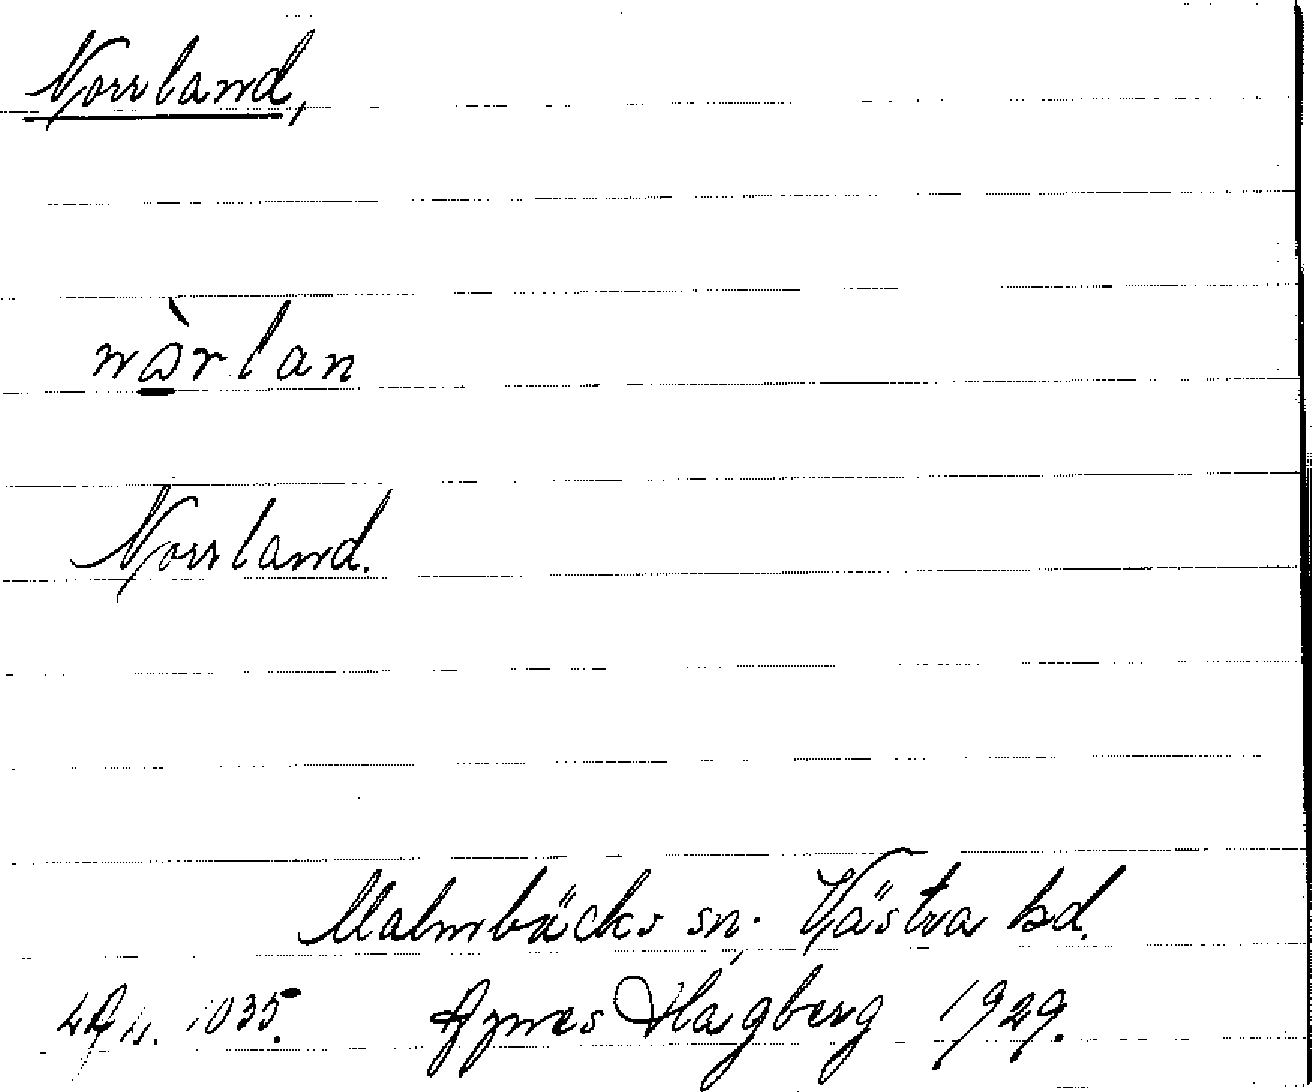 Norrland,
nòrlan
Norrland.
Malmbäcks sn. Västra hd.
1035. Agnes Hågberg 1929.